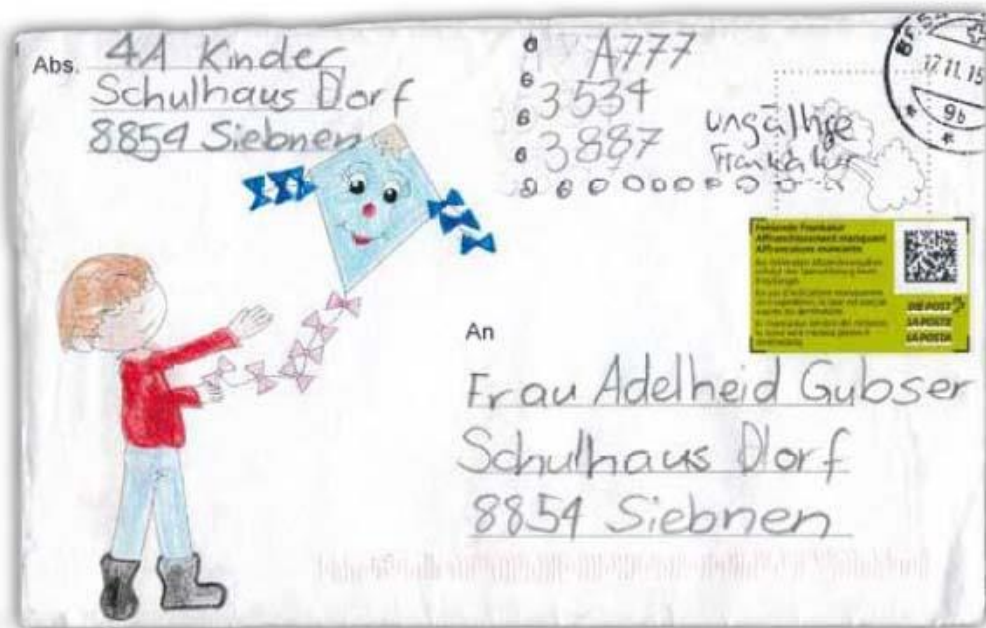 Abs. 4A Kinder
Schulhaus Dorf
8854 Siebnen
A777
3534
3887
ungältige
Frankatur
17.11.15
9b
Fehlende Frankatur
Affranchissement manquant
Affrancatura mancante
DIE POST
LA POSTE
LA POSTA
An
Frau Adelheid Gubser
Schulhaus Dorf
8854 Siebnen